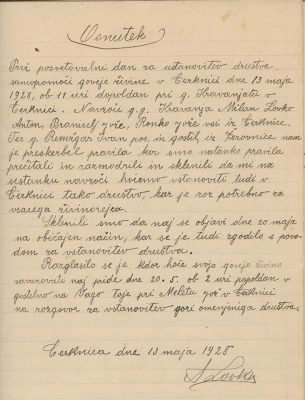 Osnutek
Prvi posvetovalni dan za ustanovitev društva
samopomoči goveje živine v Cerknici dne 13 maja
1928, ob 11 uri dopoldan pri g. Kravanjatu v
Cerknici. Navzoči g.g. Kravanja Milan Lovko
Anton, Braniselj Jože, Ronko Jože vsi iz Cerknice.
Ter g. Remžgar Ivan pos. in gostil. iz Žerovnice nam
je preskerbel pravila kor smo natanko pravila
prečitali in razmodrili in sklenili da mi na
sestanku navzoči hočemo vstanoviti tudi v
Cerknici tako društvo, kar je zor potrebno za
vsacega živinorejca.
Sklenili smo da naj se objavi dne 20 maja
na običajen način, kar se je tudi zgodilo s povo-
dom za vstanovitev društva.
Razglasilo se je kdor hoče svojo govejo živino
zavarovati naj pride dne 20. 5. ob 2 uri popoldan v
gostilno na Vago toje pri Meletu Jož v Cerknici
na razgovor za vstanovitev gori omenjeniga društva.
Cerknica dne 13 maja 1928
A Lovko